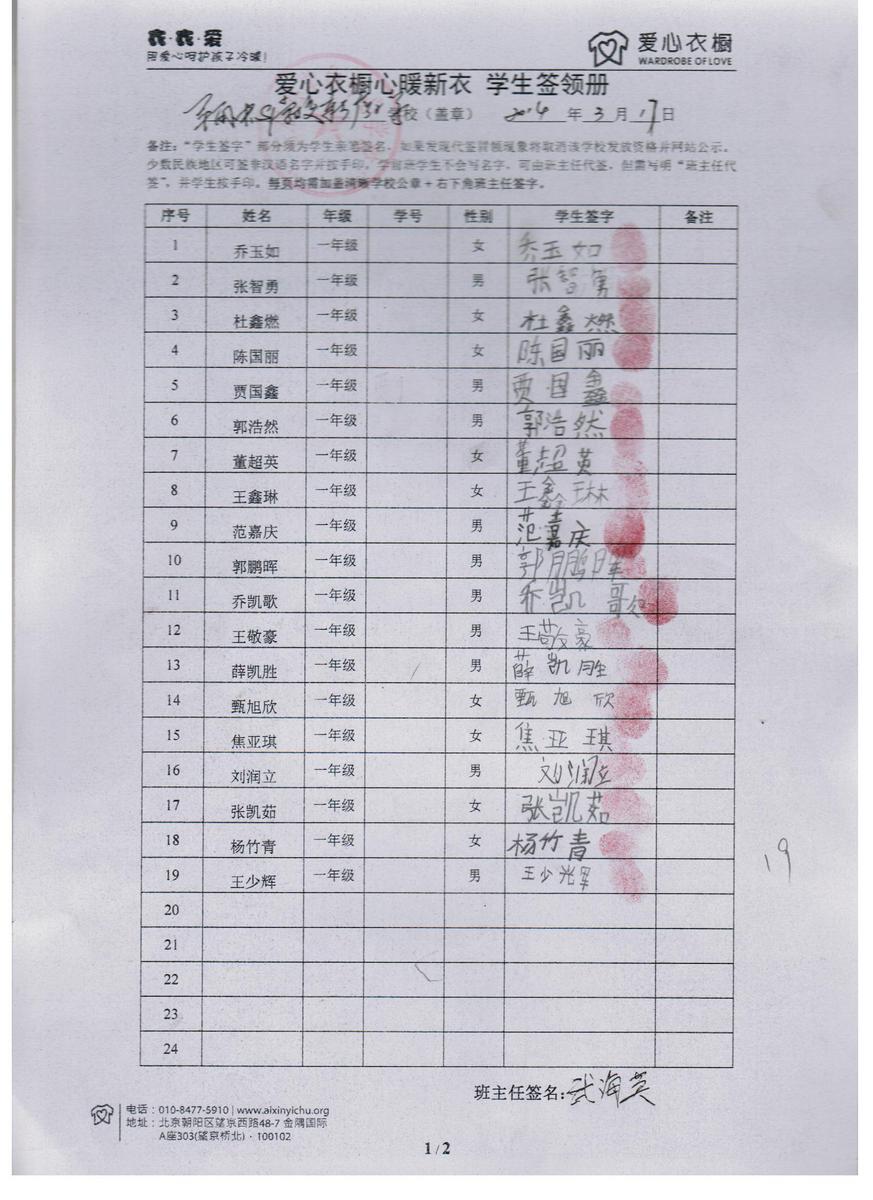 衣·衣·爱
用爱心呵护孩子冷暖!
爱心衣橱
WARDROBE OF LOVE
爱心衣橱心暖新衣 学生签领册
学校（盖章） 2014 年 3 月 17 日
备注：“学生签字”部分须为学生亲笔签名，如果发现代签冒领现象将取消该学校发放资格并网站公示。
少数民族地区可签非汉语名字并按手印，学前班学生不会写名字，可由班主任代签，但需写明“班主任代
签”，并学生按手印。每页均需加盖清晰学校公章+右下角班主任签字。
序号 姓名 年级 学号 性别 学生签字 备注
1 乔玉如 一年级 女 乔玉如
2 张智勇 一年级 男 张智勇
3 杜鑫燃 一年级 女 杜鑫燃
4 陈国丽 一年级 女 陈国丽
5 贾国鑫 一年级 男 贾国鑫
6 郭浩然 一年级 男 郭浩然
7 董超英 一年级 女 董超英
8 王鑫琳 一年级 女 王鑫琳
9 范嘉庆 一年级 男 范嘉庆
10 郭鹏晖 一年级 男 郭鹏晖
11 乔凯歌 一年级 男 乔凯歌
12 王敬豪 一年级 男 王敬豪
13 薛凯胜 一年级 男 薛凯胜
14 甄旭欣 一年级 女 甄旭欣
15 焦亚琪 一年级 女 焦亚琪
16 刘润立 一年级 男 刘润立
17 张凯茹 一年级 女 张凯茹
18 杨竹青 一年级 女 杨竹青
19 王少辉 一年级 男 王少辉
19
20
21
22
23
24
班主任签名:武海英
电话：010-8477-5910 | www.aixinyichu.org
地址：北京朝阳区望京西路48-7 金隅国际
A座303(望京桥北)·100102
1 / 2